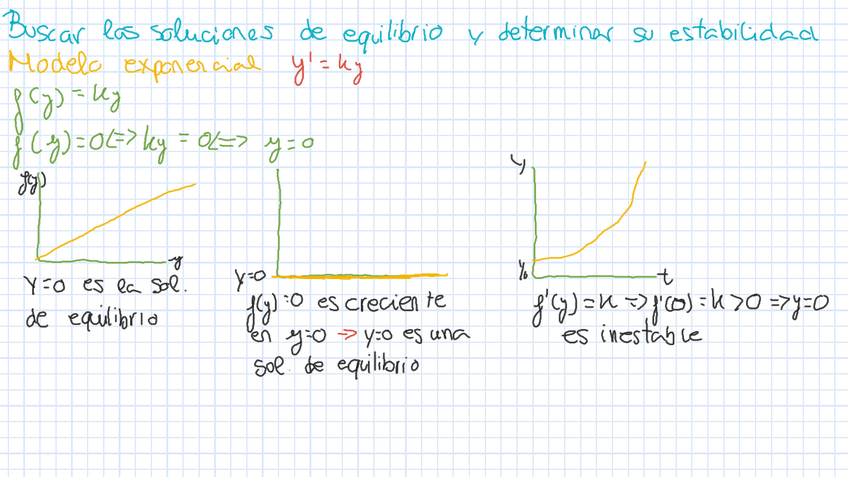 Buscar las soluciones de equilibrio y determinar su estabilidad
Modelo exponencial y' = ky
f(y) = ky
f(y)=0<=> ky = 0<=> y=0
f(y)
y
y=0
y
y₀
t
Y=0 es la sol.
de equilibrio
f(y)=0 es creciente
en y=0 => y=0 es una
sol. de equilibrio
f'(y)=k => f'(0)=k>0 => y=0
es inestable